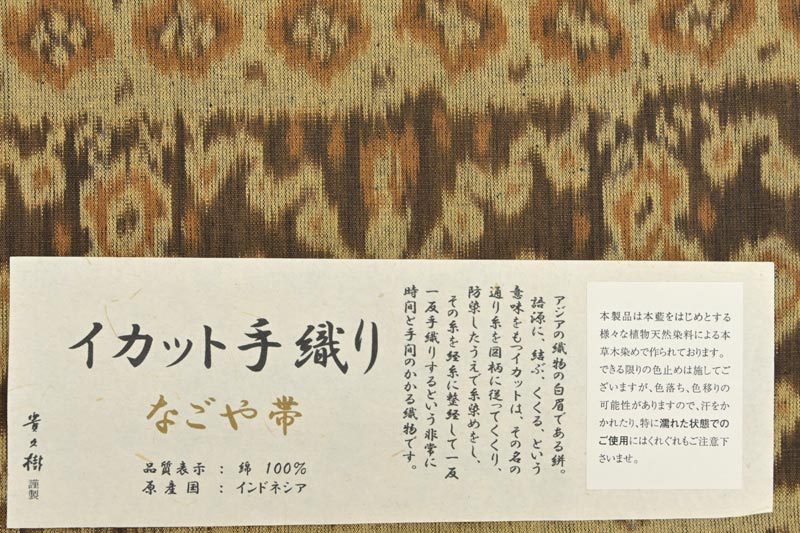 イカット手織り
なごや帯
品質表示 : 綿 100%
原産国 : インドネシア
貴久樹
謹製
アジアの織物の白眉である絣。
語源に、結ぶ、くくる、という
意味をもつイカットは、その名の
通り糸を図柄に従ってくくり、
防染したうえで糸染めをし、
その糸を経糸に整経して一反
一反手織りするという非常に
時間と手間のかかる織物です。
本製品は本藍をはじめとする
様々な植物天然染料による本
草木染めで作られております。
できる限りの色止めは施してご
ざいますが、色落ち、色移りの
可能性がありますので、汗をか
かれたり、特に濡れた状態での
ご使用にはくれぐれもご注意下
さいませ。